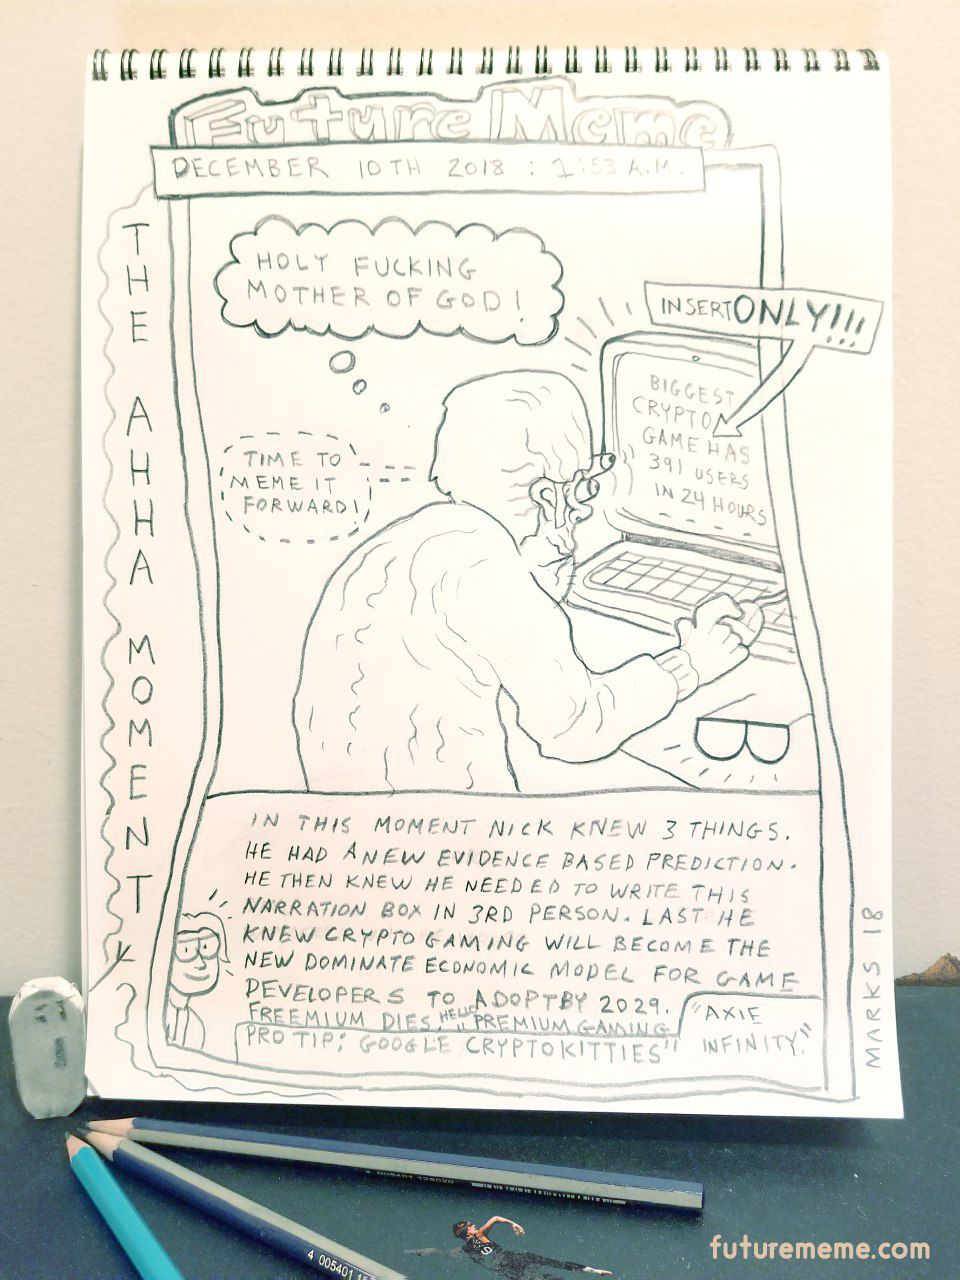 Future Meme
DECEMBER 10TH 2018 : 1:53 A.M.
THE AHHA MOMENT
HOLY FUCKING
MOTHER OF GOD!
INSERT ONLY!!!
BIGGEST
CRYPTO
GAME HAS
391 USERS
IN 24 HOURS
TIME TO
MEME IT
FORWARD!
B
IN THIS MOMENT NICK KNEW 3 THINGS.
HE HAD A NEW EVIDENCE BASED PREDICTION.
HE THEN KNEW HE NEEDED TO WRITE THIS
NARRATION BOX IN 3RD PERSON. LAST HE
KNEW CRYPTO GAMING WILL BECOME THE
NEW DOMINATE ECONOMIC MODEL FOR GAME
DEVELOPERS TO ADOPT BY 2029.
FREEMIUM DIES. HELLO "PREMIUM GAMING
PRO TIP: GOOGLE CRYPTOKITTIES" "AXIE
INFINITY."
MARKS 18
4 005401 128020
4 005401
9
futurememe.com